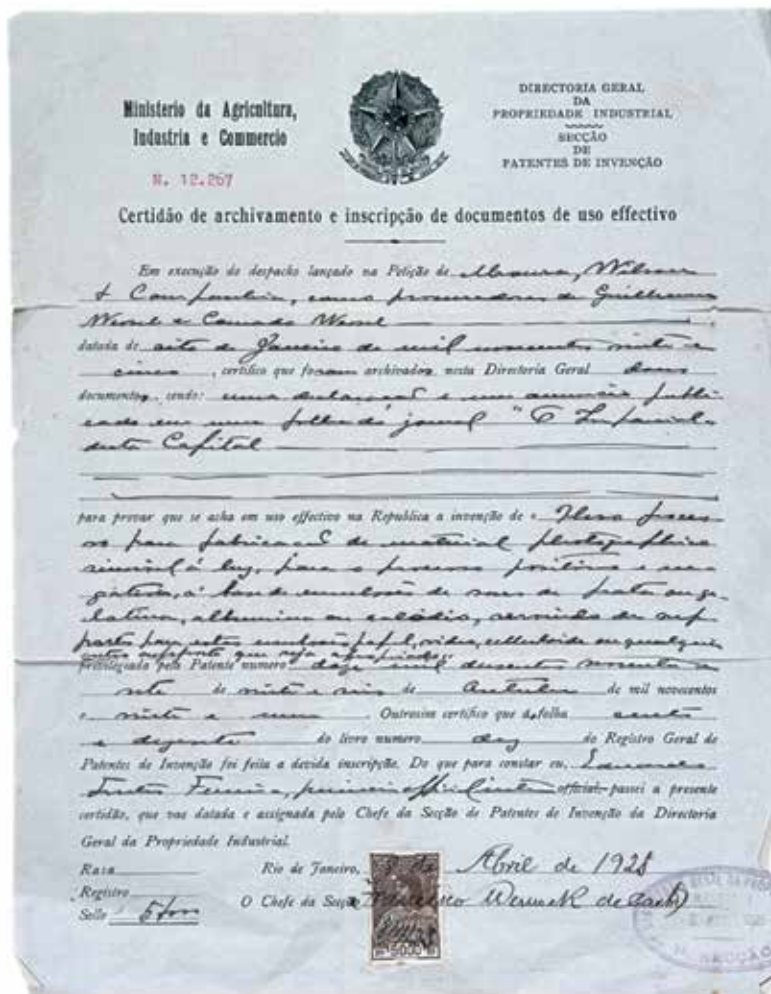 Ministerio da Agricultura,
Industria e Commercio
N. 12.267
DIRECTORIA GERAL
DA
PROPRIEDADE INDUSTRIAL
SECÇÃO
DE
PATENTES DE INVENÇÃO
Certidão de archivamento e inscripção de documentos de uso effectivo
Em execução do despacho lançado na Petição de Moura, Wilson
& Companhia, como procuradores de Guilherme
Wessel e Conrado Wessel
datada de oito de Janeiro de mil novecentos vinte e
cinco, certifico que foram archivados, nesta Directoria Geral dous
documentos, sendo: uma declaração e um annuncio publi-
cado em uma folha do jornal "O Imparcial"
desta Capital
para provar que se acha em uso effectivo na Republica a invenção de "Novo proces-
so para fabricação de material photographico
sensivel á luz, para o processo positivo e ne-
gativo, á base de emulsões de saes de prata em ge-
latina, albumina ou colodio, servindo de sup-
porte para estas emulsões papel, vidro, celluloide ou qualquer
outro supporte que seja apropriado"
privilegiada pela Patente numero doze mil duzentos sessenta e
sete de vinte e seis de Outubro de mil novecentos
e vinte e um. Outrosim certifico que á folha cento
e do livro numero dez do Registro Geral de
Patentes de Invenção foi feita a devida inscripção. Do que para constar eu, Eduardo
Ferreira, primeiro official passei a presente
certidão, que vae datada e assignada pelo Chefe da Secção de Patentes de Invenção da Directoria
Geral da Propriedade Industrial.
Rasa
Rio de Janeiro, de Abril de 1925
Registro
O Chefe da Secção Francisco Werneck de
Sello
5000
SECÇÃO